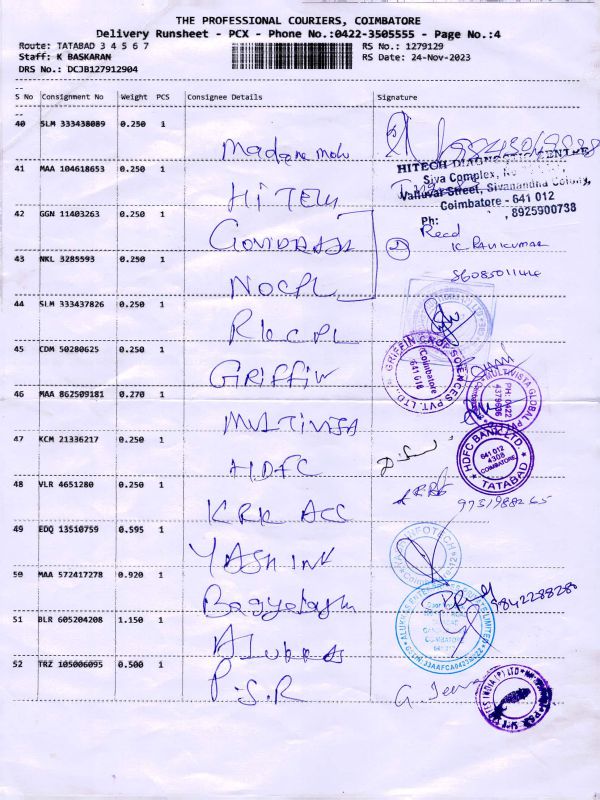 THE PROFESSIONAL COURIERS, COIMBATORE
Delivery Runsheet - PCX - Phone No.:0422-3505555 - Page No.:4
Route: TATABAD 3 4 5 6 7
RS No.: 1279129
Staff: K BASKARAN
RS Date: 24-Nov-2023
DRS No.: DCJB127912904
S No Consignment No Weight PCS Consignee Details Signature
40 SLM 333438089 0.250 1
41 MAA 104618653 0.250 1 HiTech
HITECH DIAGNOSTIC CENTRE
Siva Complex,
Valluvar Street, Sivanandha Colony,
Coimbatore - 641 012
Ph: , 8925900738
42 GGN 11403263 0.250 1
Recd
K RAVIKUMAR
43 NKL 3285593 0.250 1 NOCPL
44 SLM 333437826 0.250 1
45 CDM 50280625 0.250 1 Griffin
GRIFFIN CROP SCIENCES PVT. LTD.
Coimbatore
641 018
46 MAA 862509181 0.270 1
MULTIVISTA GLOBAL
PH: 0422
4378606
47 KCM 21336217 0.250 1 HDFC
HDFC BANK LTD.
641 012
4308
COIMBATORE
TATABAD
48 VLR 4651280 0.250 1 KRR ACS
49 EDQ 13510759 0.595 1 YASH INK
INFOTECH
50 MAA 572417278 0.920 1
9842288280
51 BLR 605204208 1.150 1
52 TRZ 105006095 0.500 1 P.S.R
INDIA (P) LTD